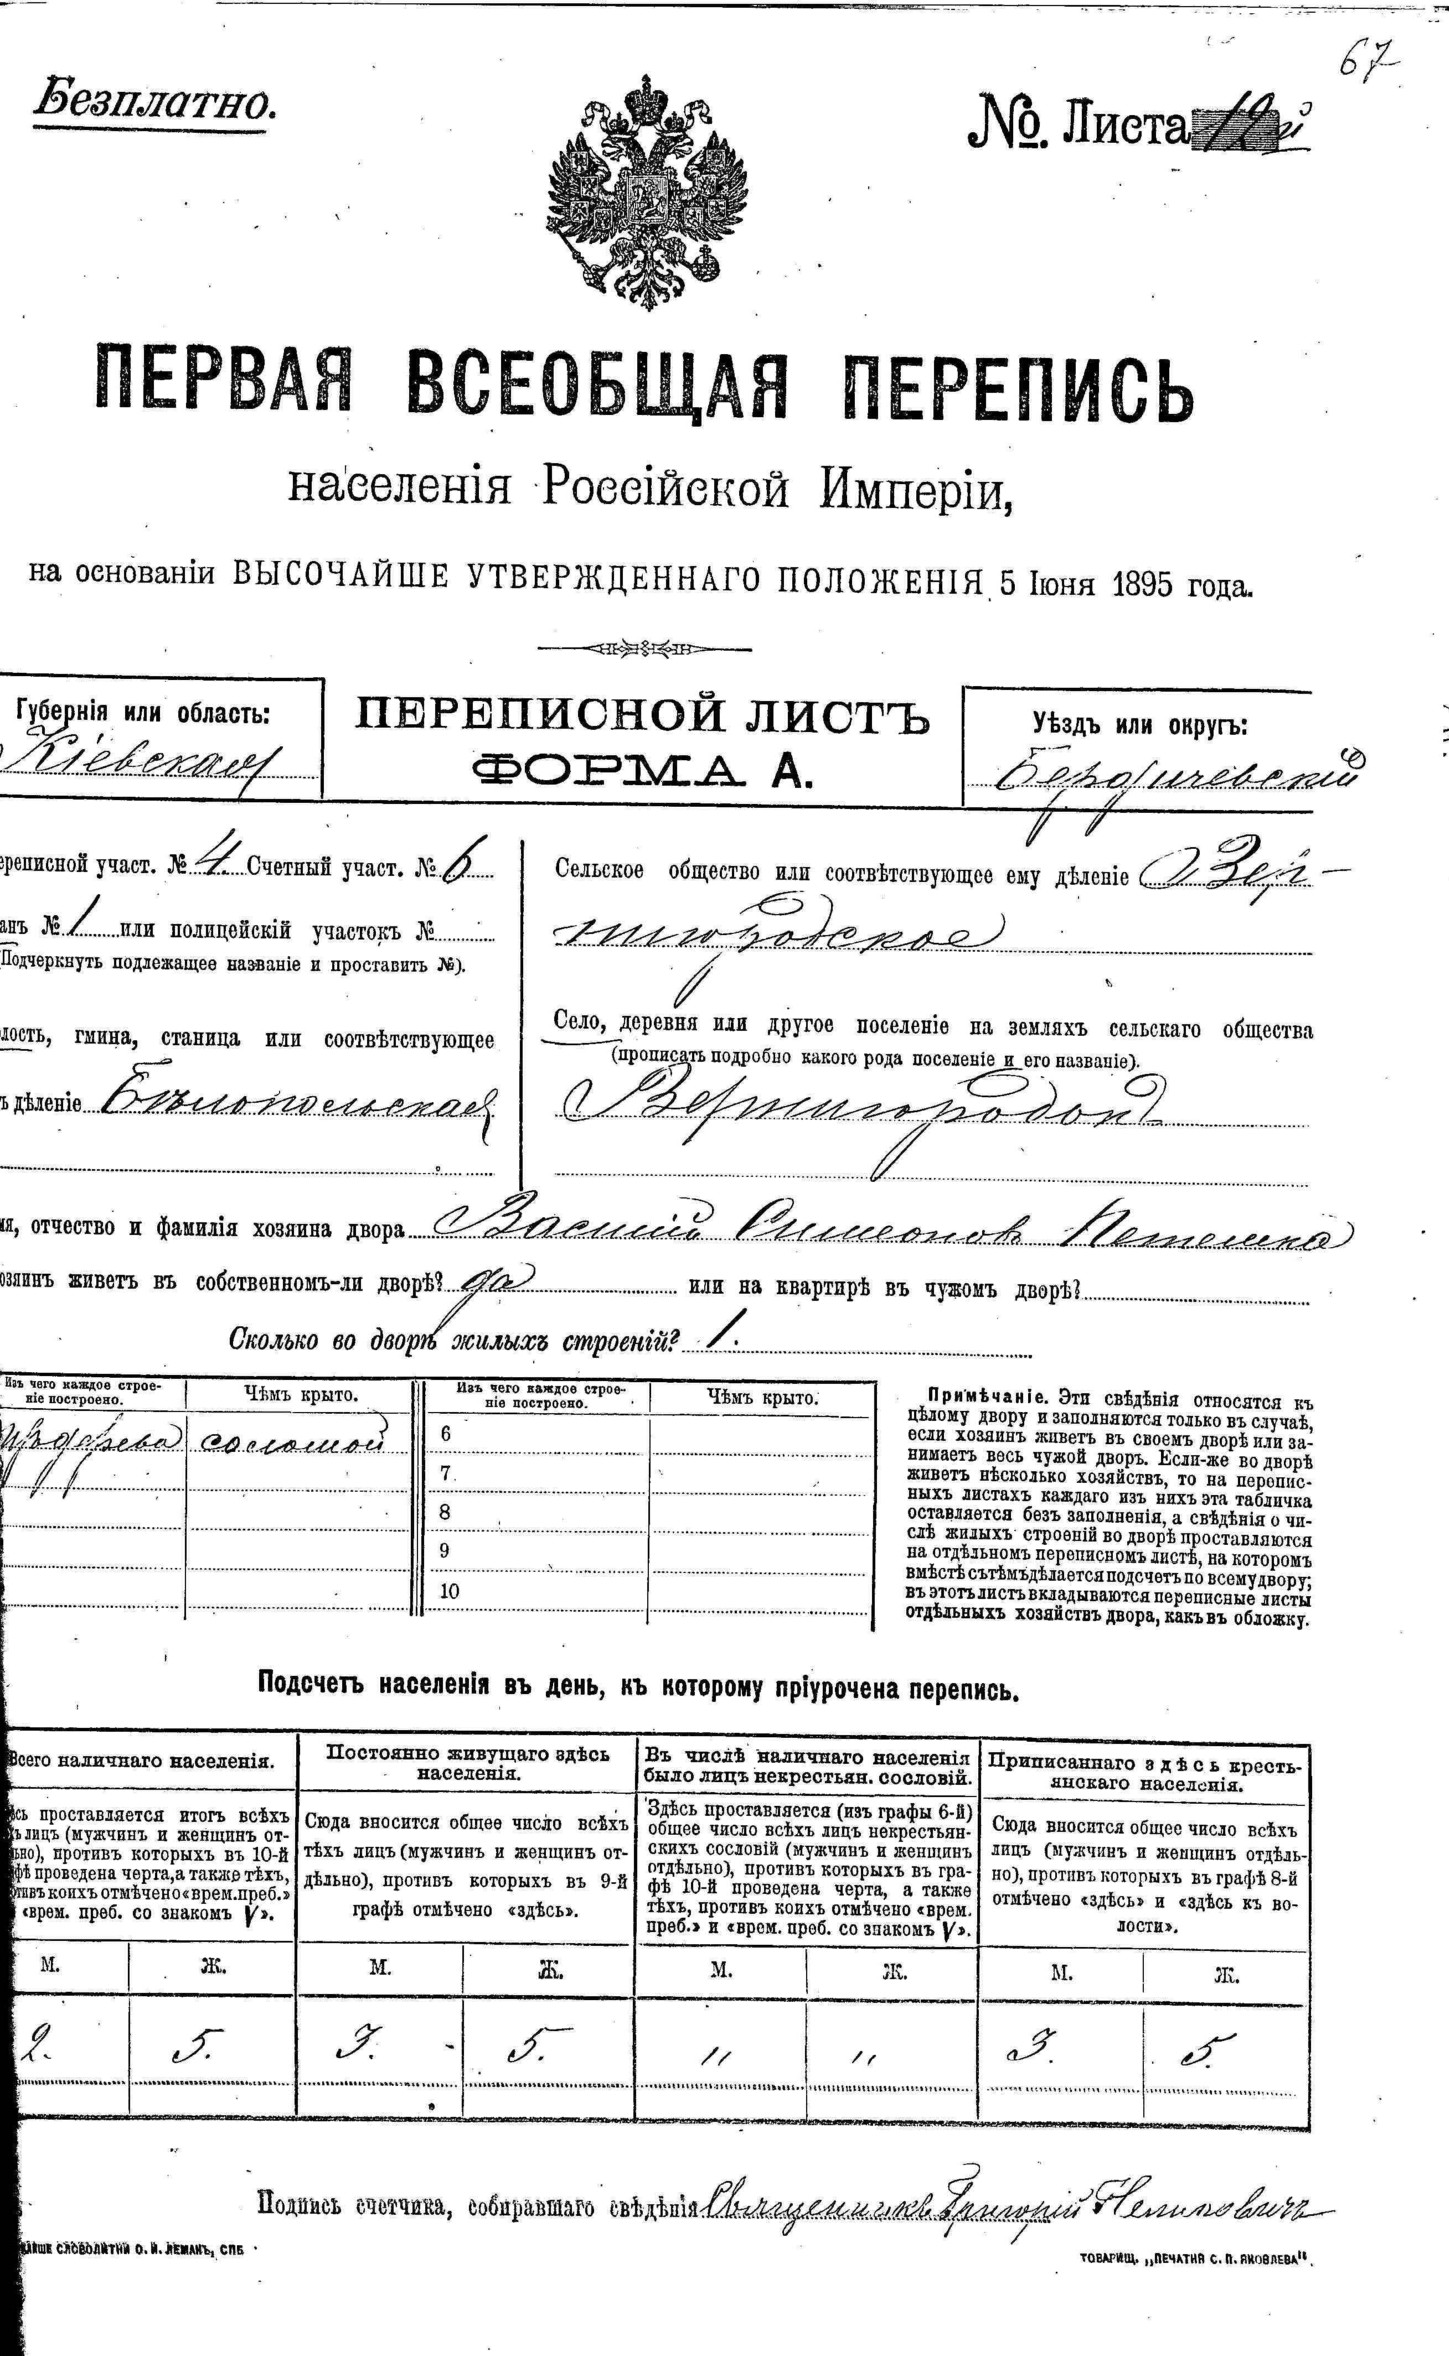 67
Безплатно.
№. Листа 12й
ПЕРВАЯ ВСЕОБЩАЯ ПЕРЕПИСЬ
населенія Россійской Имперіи,
на основаніи ВЫСОЧАЙШЕ УТВЕРЖДЕННАГО ПОЛОЖЕНІЯ 5 Іюня 1895 года.
Губернія или область:
Кіевская
ПЕРЕПИСНОЙ ЛИСТЪ
ФОРМА А.
Уѣздъ или округъ:
Бердичевскій
ереписной участ. № 4. Счетный участ. № 6
анъ № 1 или полицейскій участокъ №
(Подчеркнуть подлежащее названіе и проставить №).
лость, гмина, станица или соотвѣтствующее
ъ дѣленіе Бѣлопольская
Сельское общество или соотвѣтствующее ему дѣленіе Вер-
нигородское
Село, деревня или другое поселеніе на земляхъ сельскаго общества
(прописать подробно какого рода поселеніе и его названіе).
мя, отчество и фамилія хозяина двора Василій Симеоновъ
озяинъ живетъ въ собственномъ-ли дворѣ? да или на квартирѣ въ чужомъ дворѣ?
Сколько во дворѣ жилыхъ строеній? 1.
Изъ чего каждое строе-
ніе построено.
Чѣмъ крыто.
Изъ чего каждое строе-
ніе построено.
Чѣмъ крыто.
изъ дерева соломой
6
7
8
9
10
Примѣчаніе. Эти свѣдѣнія относятся къ
цѣлому двору и заполняются только въ случаѣ,
если хозяинъ живетъ въ своемъ дворѣ или за-
нимаетъ весь чужой дворъ. Если-же во дворѣ
живетъ нѣсколько хозяйствъ, то на перепис-
ныхъ листахъ каждаго изъ нихъ эта табличка
оставляется безъ заполненія, а свѣдѣнія о чи-
слѣ жилыхъ строеній во дворѣ проставляются
на отдѣльномъ переписномъ листѣ, на которомъ
вмѣстѣ съ тѣмъ дѣлается подсчетъ по всему двору;
въ этотъ листъ вкладываются переписные листы
отдѣльныхъ хозяйствъ двора, какъ въ обложку.
Подсчетъ населенія въ день, къ которому пріурочена перепись.
Всего наличнаго населенія.
сь проставляется итогъ всѣхъ
ъ лицъ (мужчинъ и женщинъ от-
ьно), противъ которыхъ въ 10-й
фѣ проведена черта, а также тѣхъ,
тивъ коихъ отмѣчено «врем. преб.»
«врем. преб. со знакомъ V».
Постоянно живущаго здѣсь
населенія.
Сюда вносится общее число всѣхъ
тѣхъ лицъ (мужчинъ и женщинъ от-
дѣльно), противъ которыхъ въ 9-й
графѣ отмѣчено «здѣсь».
Въ числѣ наличнаго населенія
было лицъ некрестьян. сословій.
Здѣсь проставляется (изъ графы 6-й)
общее число всѣхъ лицъ некрестьян-
скихъ сословій (мужчинъ и женщинъ
отдѣльно), противъ которыхъ въ гра-
фѣ 10-й проведена черта, а также
тѣхъ, противъ коихъ отмѣчено «врем.
преб.» и «врем. преб. со знакомъ V».
Приписаннаго здѣсь кресть-
янскаго населенія.
Сюда вносится общее число всѣхъ
лицъ (мужчинъ и женщинъ отдѣль-
но), противъ которыхъ въ графѣ 8-й
отмѣчено «здѣсь» и «здѣсь къ во-
лости».
М. Ж. М. Ж. М. Ж. М. Ж.
2. 5. 3. 5. " " 3. 5.
Подпись счетчика, собиравшаго свѣдѣнія Священникъ Григорій
СЛОВОЛИТНИ О. И. ЛЕМАНЪ, СПБ
ТОВАРИЩ. „ПЕЧАТНЯ С. П. ЯКОВЛЕВА".